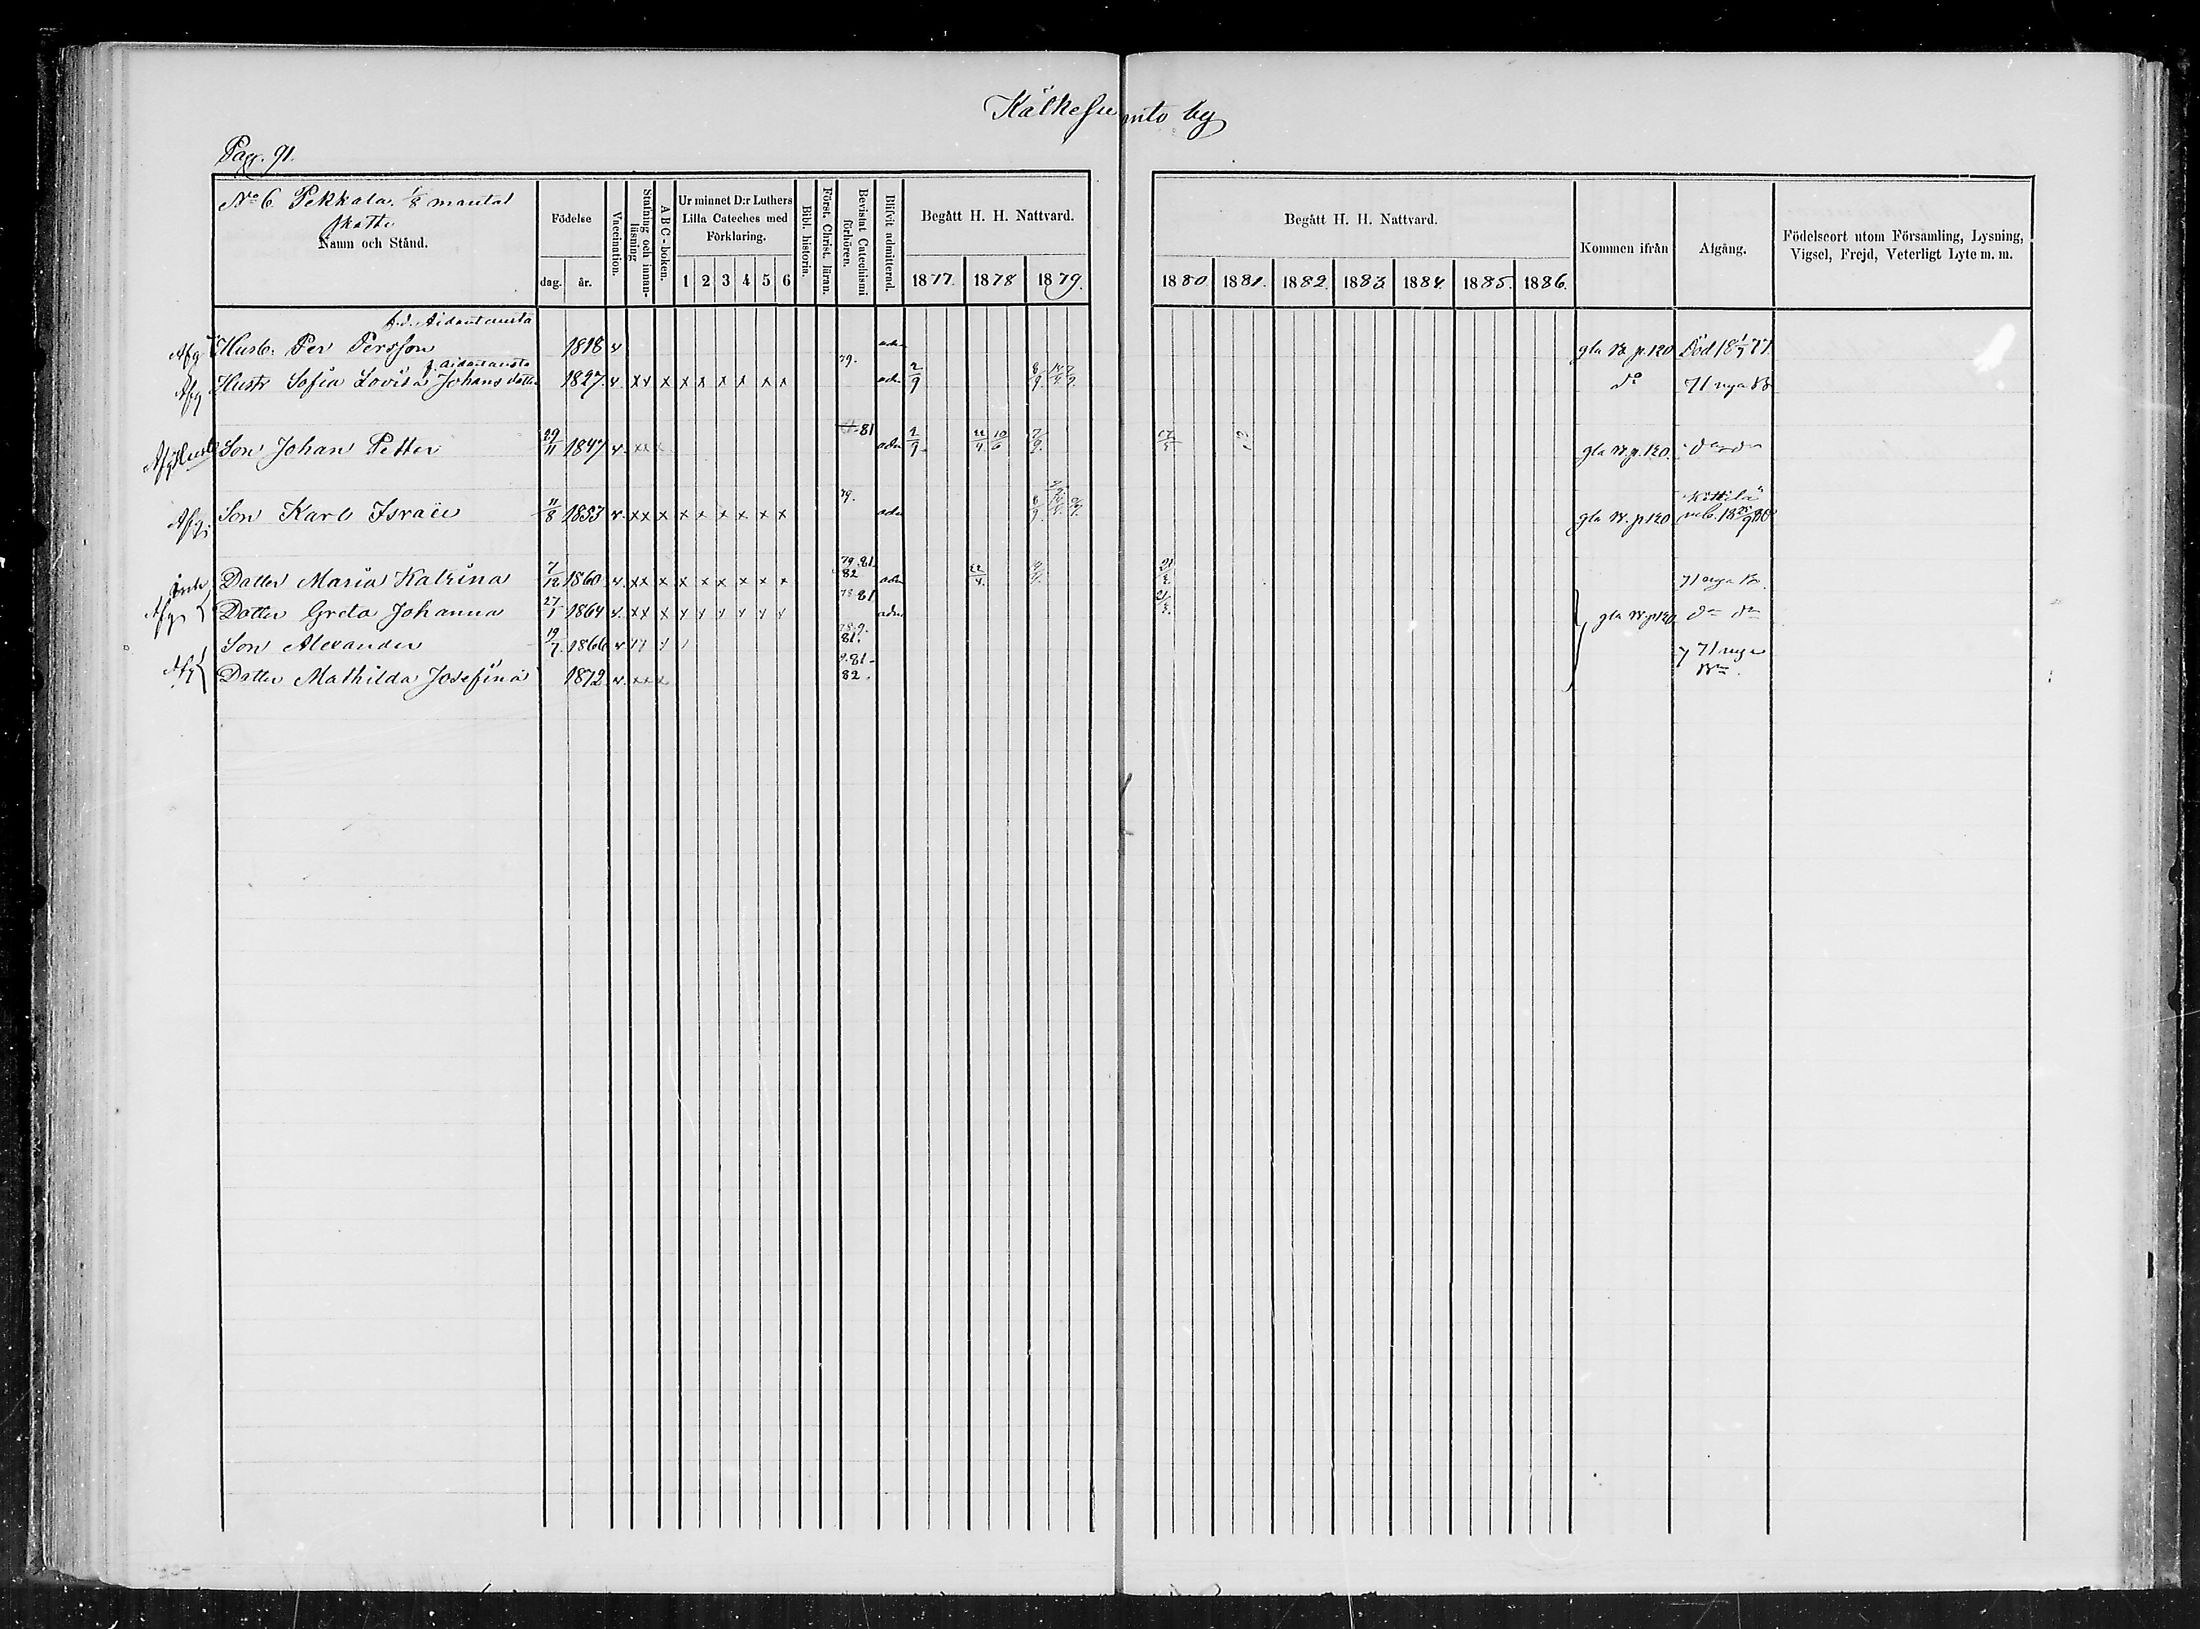 Kälkesuanto by
Pag. 91.
No 6 Pekkala, 1/8 mantal
skatte
Namn och Stånd.
Födelse
dag. år.
Vaccination.
Stafning och innanläsning
ABC-boken.
Ur minnet D:r Luthers
Lilla Cateches med
Förklaring.
1 2 3 4 5 6
Bibl. historia.
Först. Christ. läran.
Bevistat Catechismi förhören.
Blifvit admitterad.
Begått H. H. Nattvard.
1877. 1878 1879.
Begått H. H. Nattvard.
1880 1881. 1882. 1883. 1884. 1885. 1886.
Kommen ifrån
Afgång.
Födelseort utom Församling, Lysning,
Vigsel, Frejd, Veterligt Lyte m. m.
Afg Husb. Per Persson 1818 v adm gla B p. 120 Död 18 1/7 77.
Afg Hustr Sofia Lovisa Johans dotter 1827. v. xx x x x x x x x 79. adm 2/9 do 71 nya B
Son Johan Petter 29/11 1847 v. xx x 81 adm 2/9 22/4 10/6 7/9. gla B. p. 120.
Afg. Son Karl Israel 11/8 1853 v. xx x x x x x x x 79. adm gla B. p 120 Kittilä
Datter Maria Katrina 7/12 1860 v. xx x x x x x x x 79. 81. 82 adm 22/4. 71 nya B.
Afg Datter Greta Johanna 27/1 1864 v. xx x x x x x x x 78 81 adm. gla B. p 120
Son Alexander 19/7. 1866 v 78. 9. 81.
71 nya
Afg Datter Mathilda Josefina 1872. v. xx x 9. 81- 82. Bn.